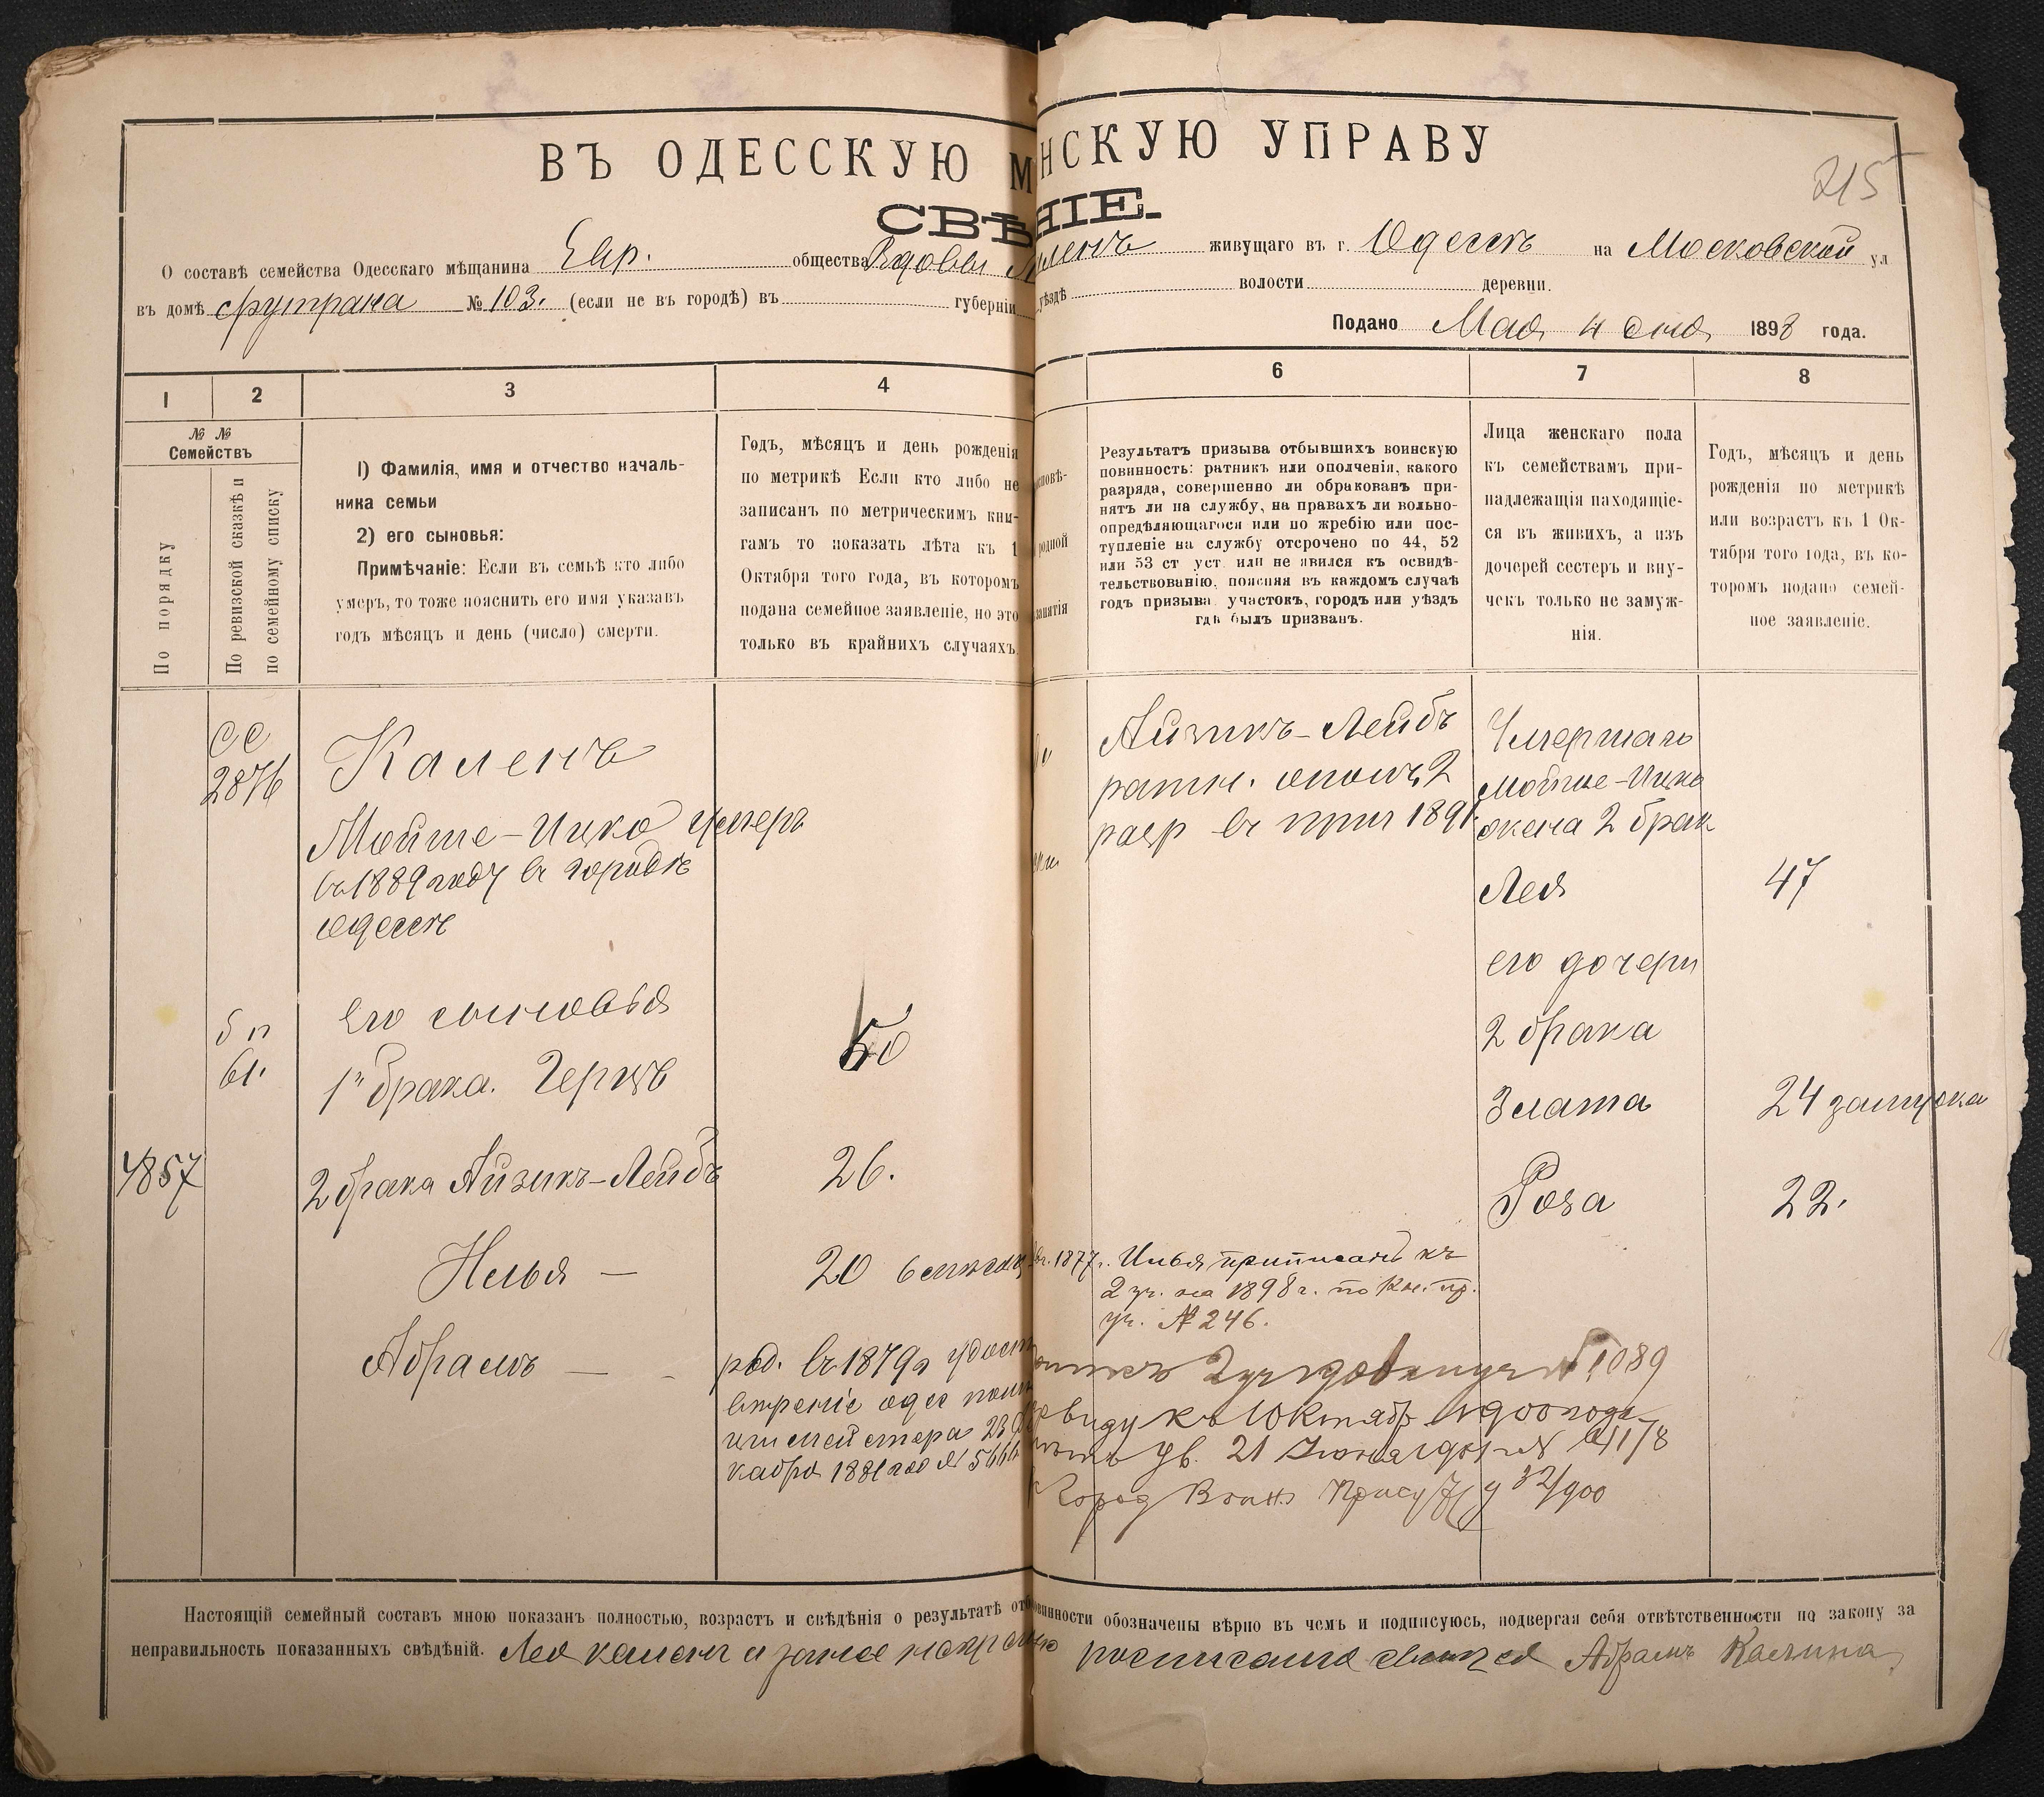 215
ВЪ ОДЕССКУЮ М НСКУЮ УПРАВУ
СВѢ НІЕ.
О составѣ семейства Одесскаго мѣщанина Евр. общества Вдовы живущаго въ г. Одессѣ на Московской ул
въ домѣ № 103. (если не въ городѣ) въ губерніи уѣздѣ волости деревни.
Подано Мая 4 дня 1898 года.
1 2 3 4 6 7 8
№ № Семействъ
По порядку
По ревизской сказкѣ и
по семейному списку
1) Фамилія, имя и отчество началь-
ника семьи
2) его сыновья:
Примѣчаніе: Если въ семьѣ кто либо
умеръ, то тоже пояснить его имя указавъ
годъ мѣсяцъ и день (число) смерти.
Годъ, мѣсяцъ и день рожденія
по метрикѣ Если кто либо не
записанъ по метрическимъ кни-
гамъ то показать лѣта къ 1
Октября того года, въ которомъ
подана семейное заявленіе, но это
только въ крайнихъ случаяхъ.
исповѣ-
родной
занятія
Результатъ призыва отбывшихъ воинскую
повинность: ратникъ или ополченія, какого
разряда, совершенно ли обракованъ при-
нятъ ли на службу, на правахъ ли вольно-
опредѣляющагося или по жребію или пос-
тупленіе на службу отсрочено по 44, 52
или 53 ст уст. или не явился къ освидѣ-
тельствованію, поясняя въ каждомъ случаѣ
годъ призыва участокъ, городъ или уѣздъ
гдѣ былъ призванъ.
Лица женскаго пола
къ семействамъ при-
надлежащія находящіе-
ся въ живихъ, а изъ
дочерей сестеръ и вну-
чекъ только не замуж-
нія.
Годъ, мѣсяцъ и день
рожденія по метрикѣ
или возрастъ къ 1 Ок-
тября того года, въ ко-
торомъ подано семей-
ное заявленіе.
сс
2876
Каленъ
Мойше-Ицко умеръ
въ 1889 году въ городѣ
Одессѣ
Его сыновья
б п
61.
1го брака. Герцъ
50
4857
2 брака Айзикъ-Лейбъ
26.
Илья —
20
Абрамъ —
род. въ 1879 г
кабря 1881 года №
Айзикъ-Лейбъ
ратн. ополч. 2
разр въ приз 1891
1877 г. Илья приписанъ къ
2 уч. на 1898 г. по Кн. пр.
уч. № 246.
№ 1089
виду къ 1 Октября 1900 года
21
Город Воин Присут 32/900
Умершаго
Мойше-Ицка
жена 2 брак
Лея
47
его дочери
2 брака
Злата
24 замужжа
Роза
22.
Настоящій семейный составъ мною показанъ полностью, возрастъ и свѣдѣнія о результатѣ отб овинности обозначены вѣрно въ чемъ и подписуюсь, подвергая себя отвѣтственности по закону за
неправильность показанныхъ свѣдѣній. Лея Каленъ а за нее неграмотную росписался Абрамъ